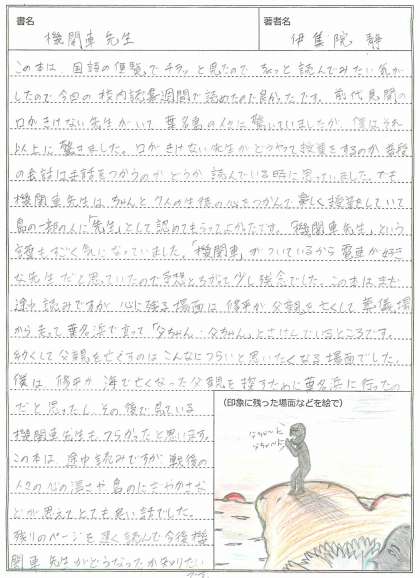 書名
機関車先生
著者名
伊集院 静
この本は、国語の便覧でチラッと見たので、ちょっと読んでみたい気が
したので今回の校内読書週間で読めたので良かったです。前代見聞の
口がきけない先生がいて葉名島の人々に驚いていましたが、僕はそれ
以上に驚きました。口がきけない先生がどうやって授業をするのか普段
の会話は手話をつかうのかどうか読んでいる時に思っていました。でも
機関車先生は、ちゃんと7人の生徒の心をつかんで楽しく授業をしていて
島の一部の人に「先生」として認めてもらってよかったです。「機関車先生」という
すごく気になっていました。「機関車」がついているから電車が好き
な先生だと思っていたので予想とちがって少し残念でした。この本はまだ
途中読みですが、心に残る場面は、修平が父親を亡くして葬儀場
から走って葉名浜で言って「父ちゃん・父ちゃん」とさけんでいるところです。
幼くして父親を亡くすのはこんなにつらいと思いたくなる場面でした。
僕は、修平が海で亡くなった父親を探すために葉名浜に行ったの
だと思ったし、その後で見ている
機関車先生もつらかったと思います。
この本は、途中読みですが戦後の
人々の心の温さや島のにぎやかさな
どが思えたとても良い話でした。
残りのページを速く読んで今後機
関車先生がどうなったか知りたい
です。
(印象に残った場面などを絵で)
父ちゃーん
父ちゃーん